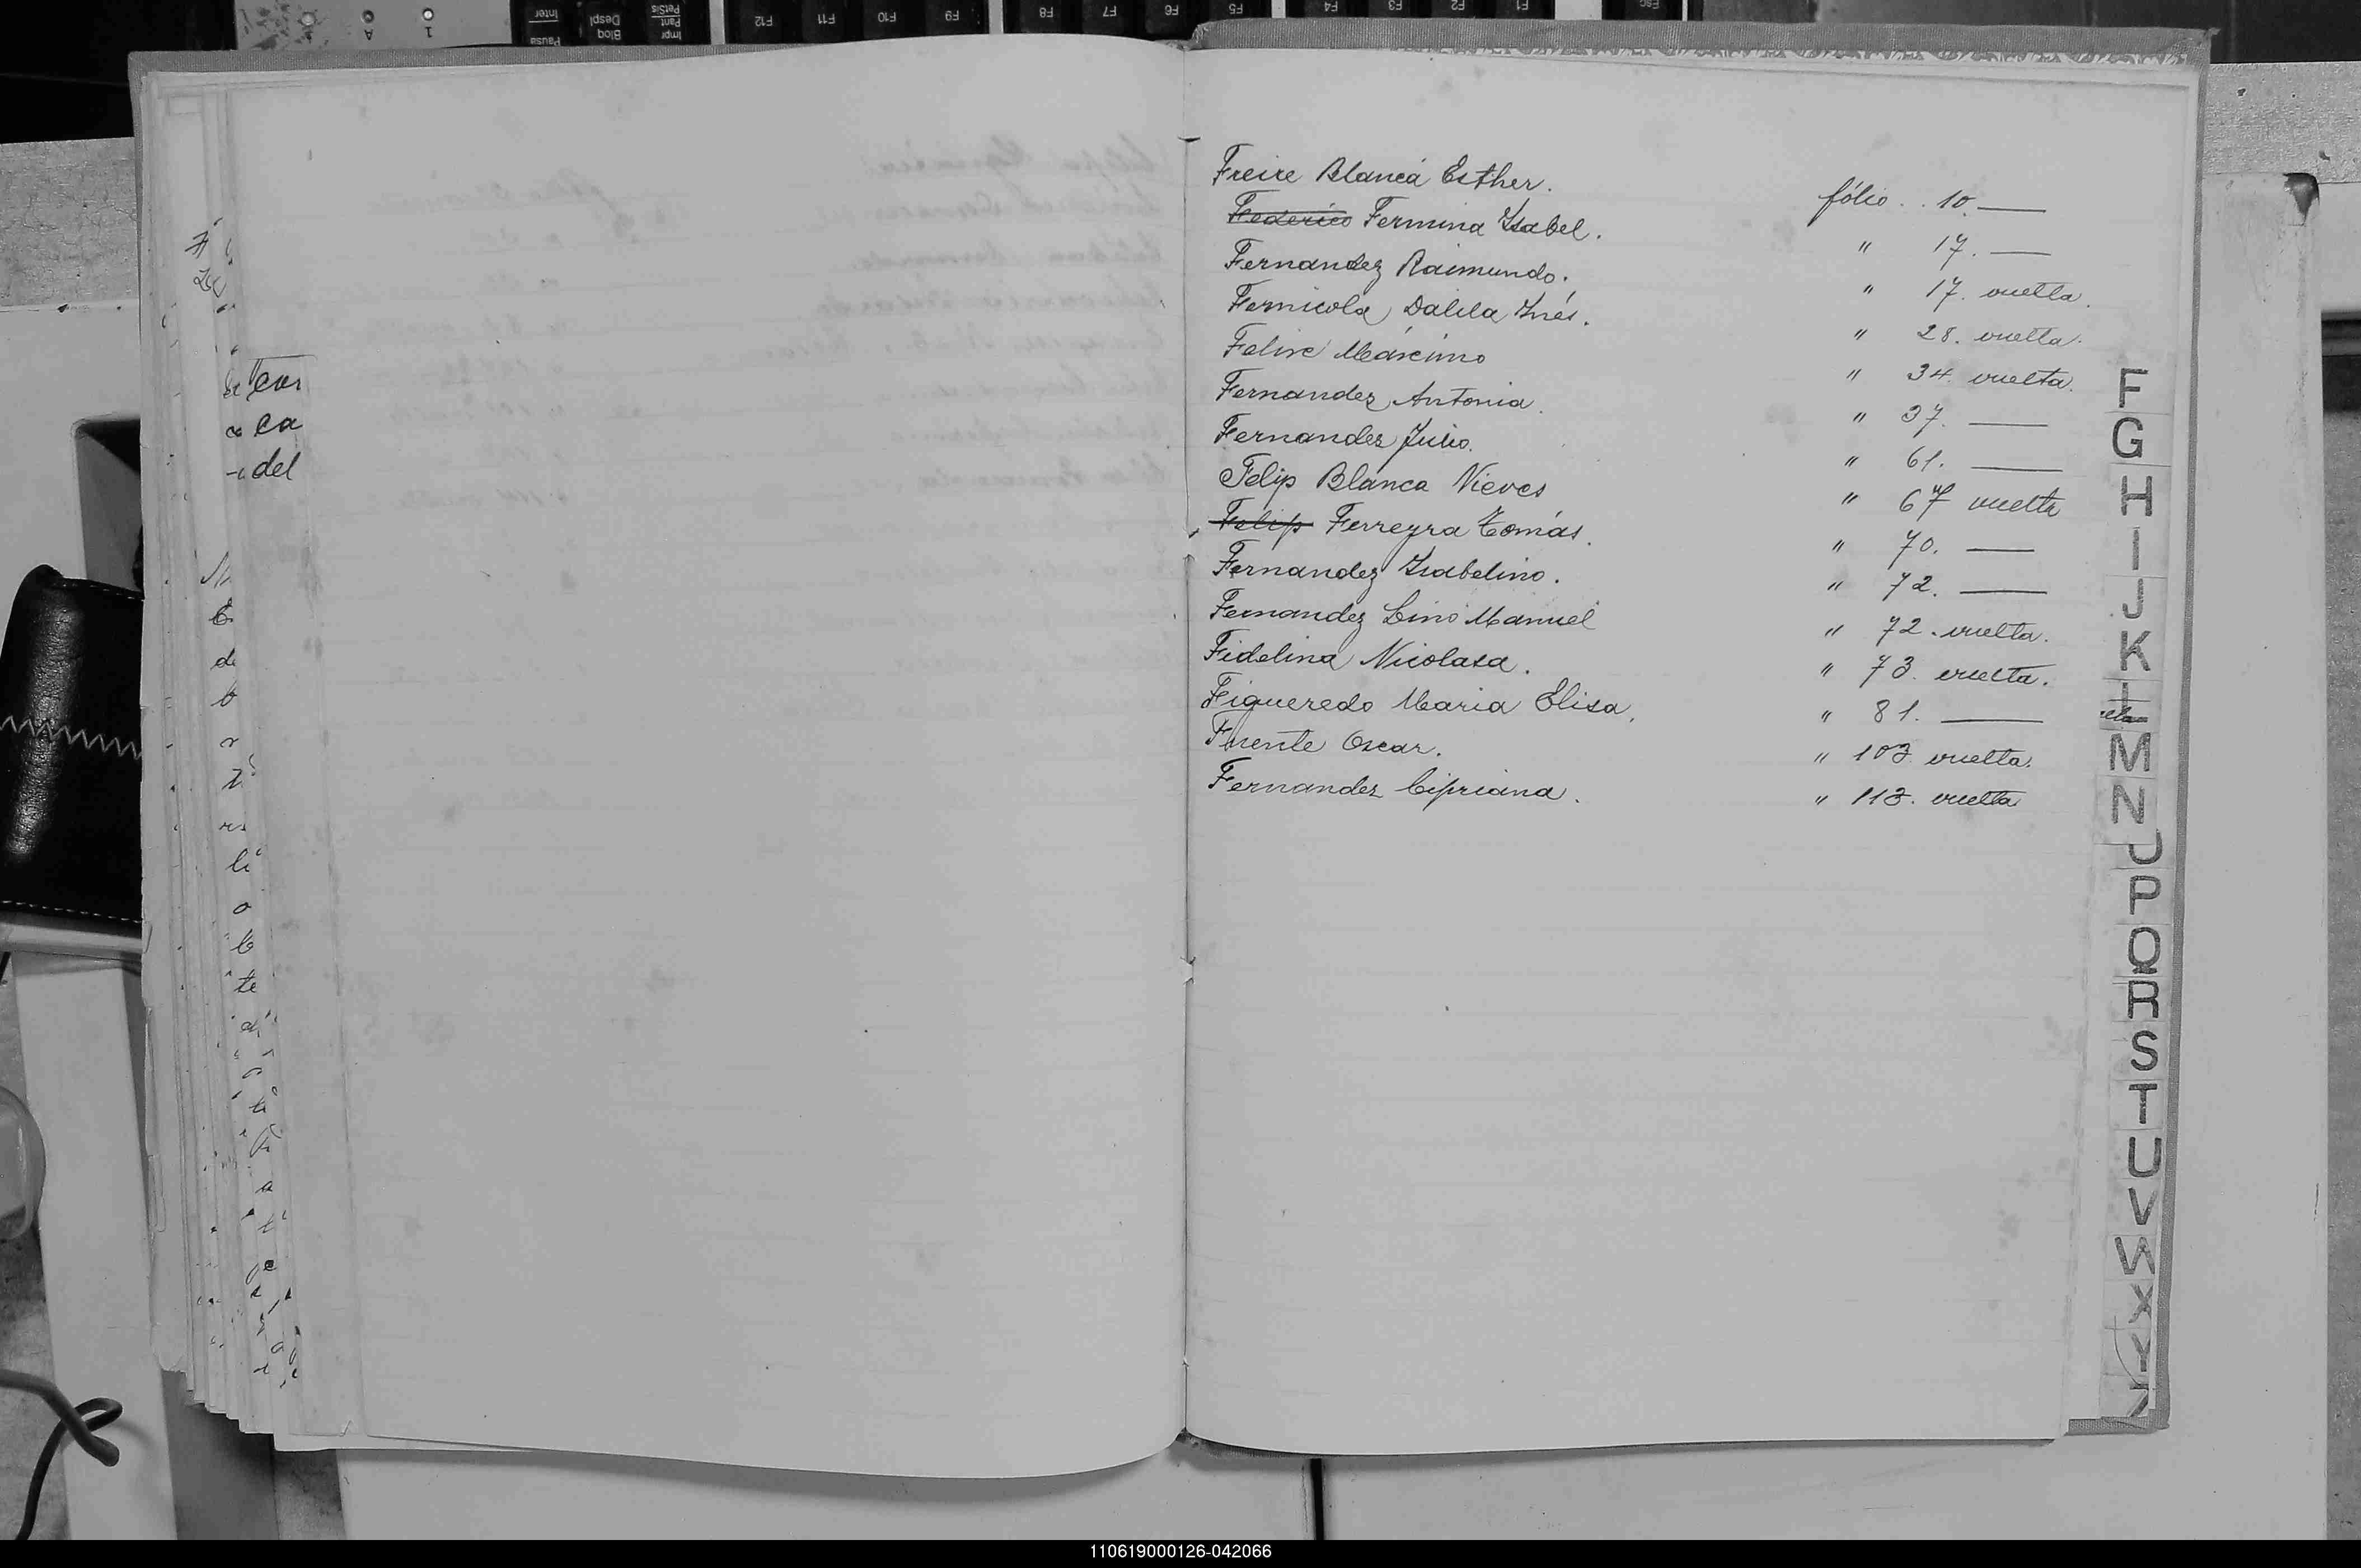 Freire Blanca Esther. fólio . . 10. —
~~Federico~~ Fermina Isabel. " 17. —
Fernandez Raimundo. " 17. vuelta.
Fernicola Dalila Inés. " 28. vuelta.
Felise Máximo " 34. vuelta.
Fernandez Antonia. " 37. —
Fernandez Julio. " 61. —
Felip Blanca Nieves " 67 vuelta
~~Felip~~ Ferreyra Tomás. " 70. —
Fernandez Isabelino. " 72. —
Fernandez Lino Manuel " 72. vuelta.
Fidelina Nicolasa. " 73. vuelta.
Figueredo Maria Elisa. " 81. —
Fuente Oscar. " 103. vuelta.
Fernandez Cipriana. " 113. vuelta
F
G
H
I
J
K
L
M
N
P
Q
R
S
T
U
V
W
X
Y
cas
ca
del
110619000126-042066